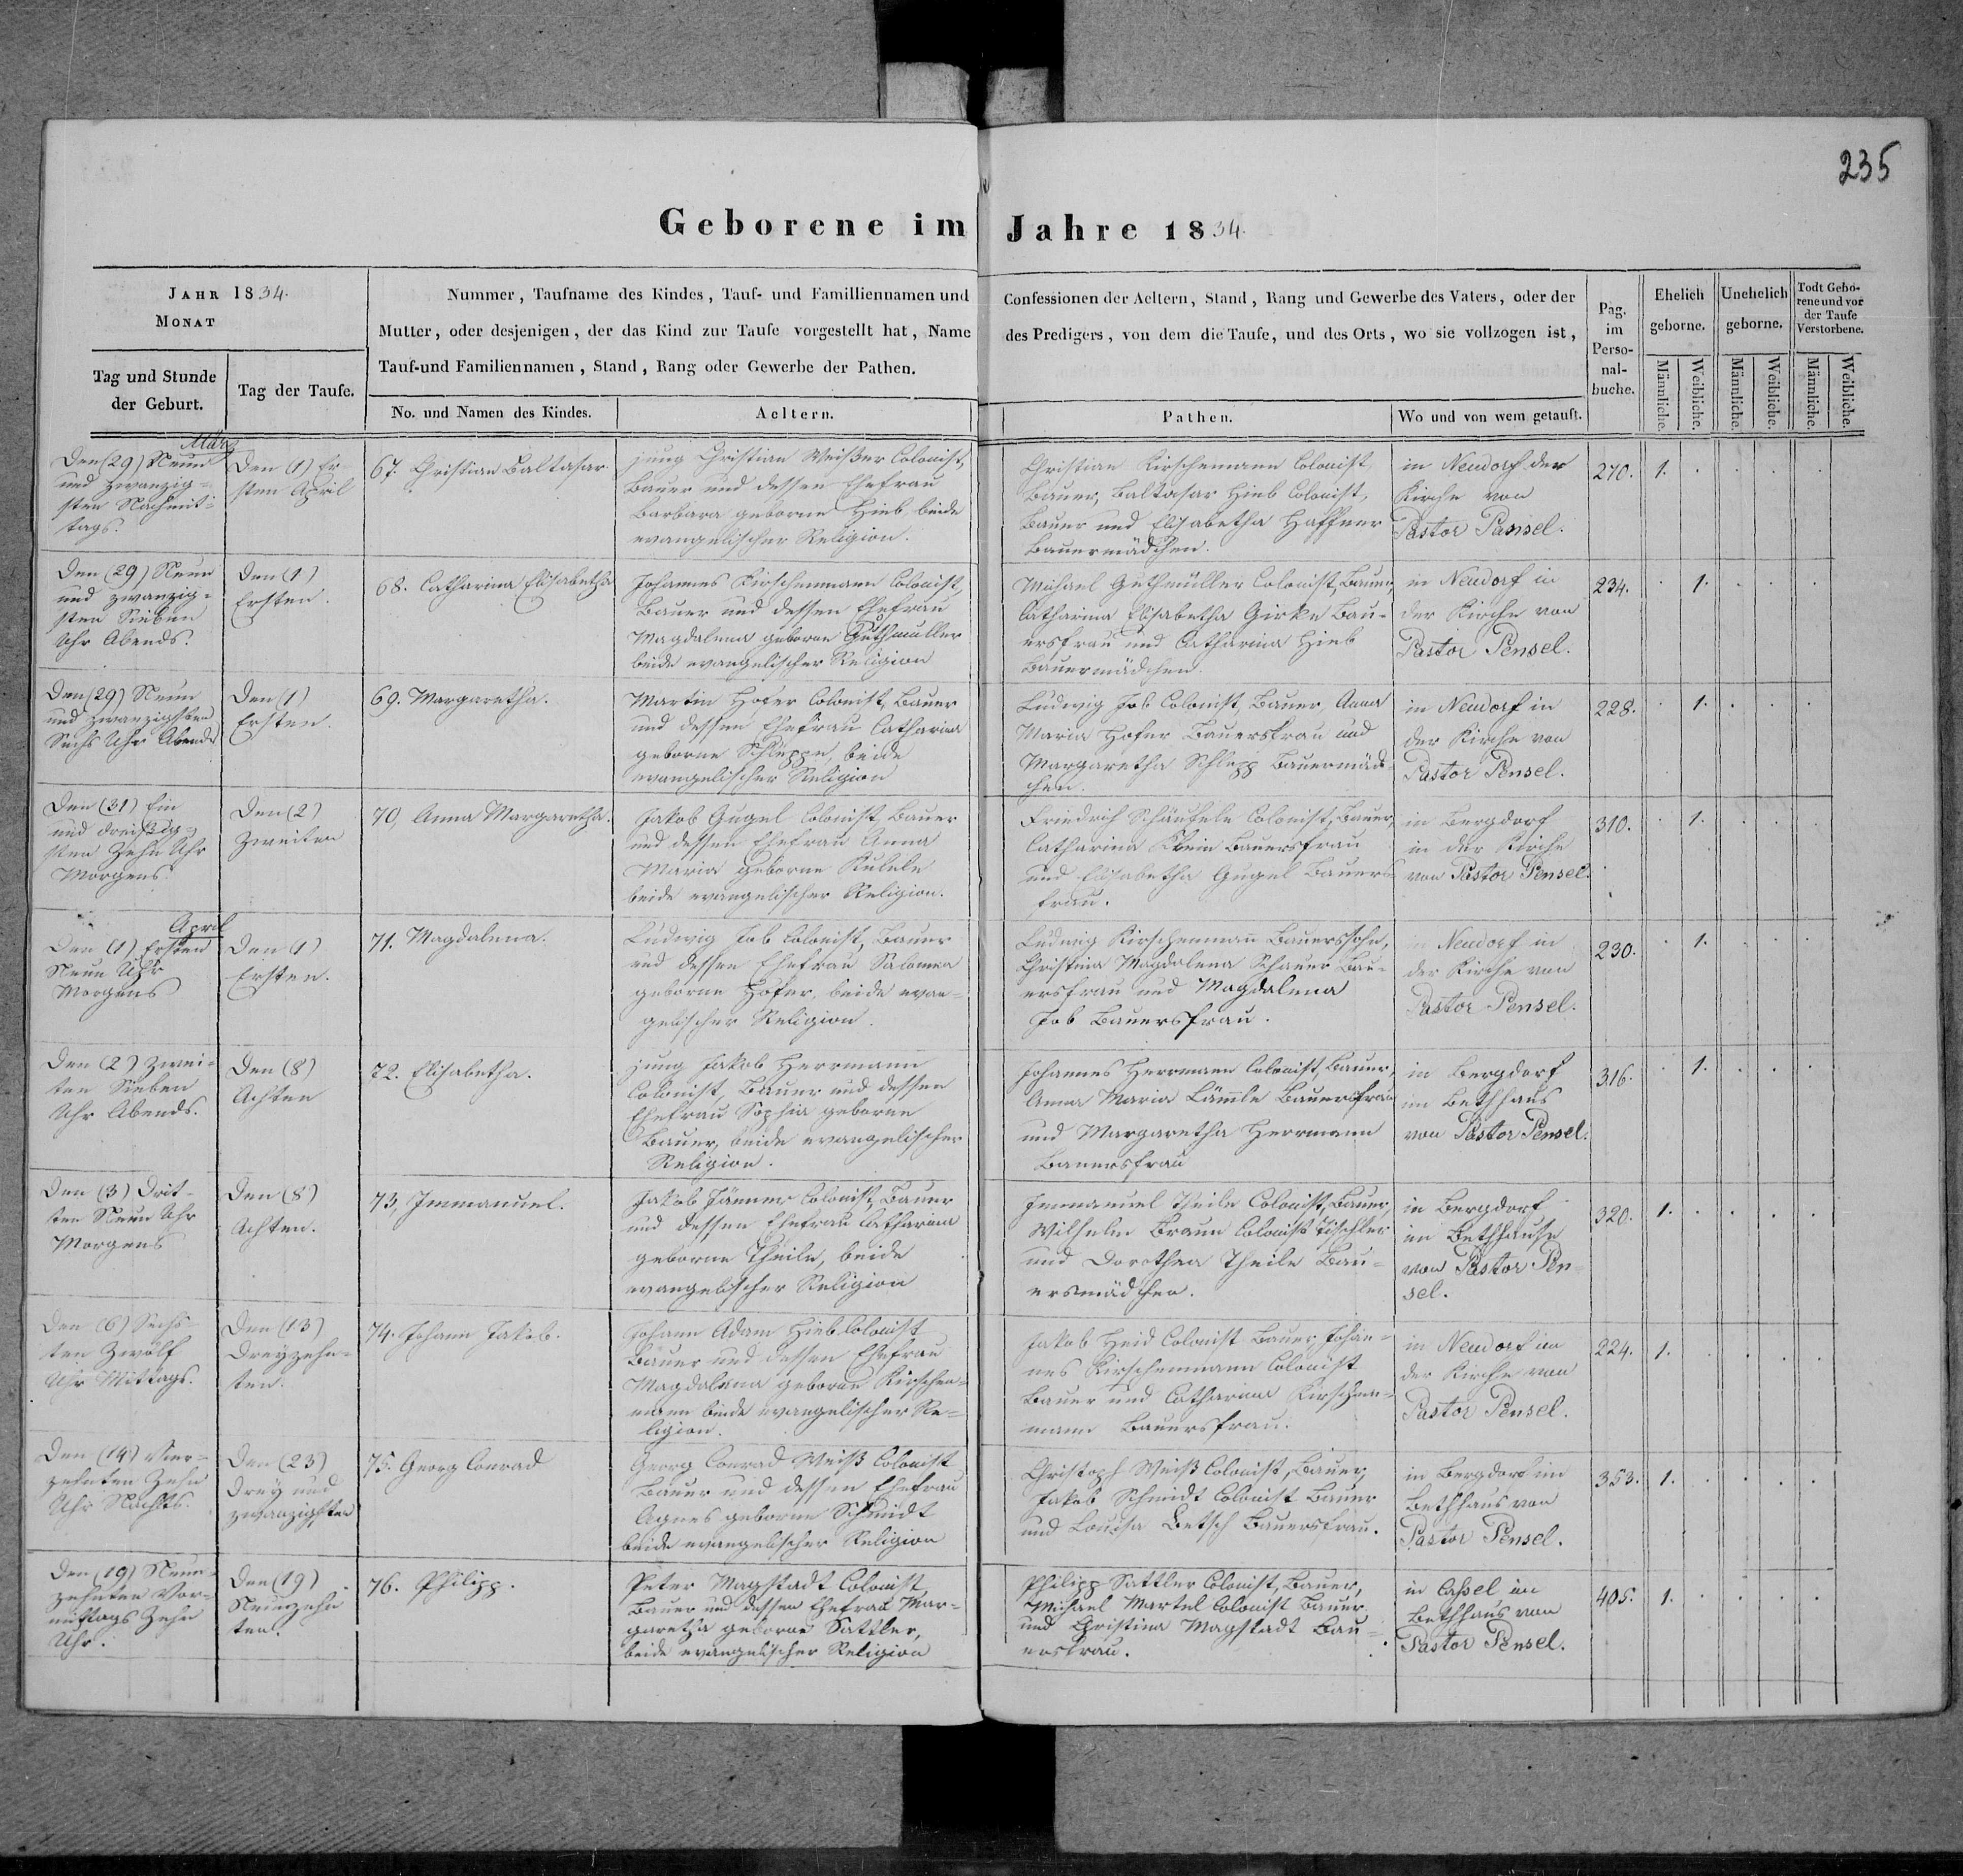 235
Geborene im Jahre 1834.
JAHR 1834.
MONAT
Tag und Stunde
der Geburt.
Tag der Taufe.
Nummer, Taufname des Kindes, Tauf- und Familliennamen und
Mutter, oder desjenigen, der das Kind zur Taufe vorgestellt hat, Name
Tauf-und Familiennamen, Stand, Rang oder Gewerbe der Pathen.
No. und Namen des Kindes.
Aeltern.
Confessionen der Aeltern, Stand, Rang und Gewerbe des Vaters, oder der
des Predigers, von dem die Taufe, und des Orts, wo sie vollzogen ist,
Pathen.
Wo und von wem getauft.
Pag.
im
Perso-
nal-
buche.
Ehelich
geborne.
Unehelich
geborne.
Todt Gebo-
rene und vor
der Taufe
Verstorbene.
Männliche.
Weibliche.
Männliche.
Weibliche.
Männliche.
Weibliche.
März
Den (29) Neun
und zwanzig-
sten Nachmit-
tags.
Den (1) Er
sten April
67. Christian Baltasar.
jung Christian Weißer Colonist,
Bauer und dessen Ehefrau
Barbara geborne Hieb, beide
evangelischer Religion.
Christian Kirschemann Colonist,
Bauer, Baltasar Hieb Colonist,
Bauer und Elisabetha Haffner
Bauermädchen.
in Neudorf der
Kirche von
Pastor Pensel.
270. 1.
Den (29) Neun
und zwanzig-
sten Sieben
Uhr Abends.
Den (1)
Ersten.
68. Catharina Elisabetha
Johannes Kirschenmann Colonist,
Bauer und dessen Ehefrau
Magdalena geborne Guthmüller
beide evangelischer Religion
Michael Guthmüller Colonist, Bauer,
Catharina Elisabetha Girke Bau-
ersfrau und Catharina Hieb
Bauermädchen.
in Neudorf in
der Kirche von
Pastor Pensel.
234. 1.
Den (29) Neun
und zwanzigsten
Sechs Uhr Abends
Den (1)
Ersten.
69. Margaretha.
Martin Hofer Colonist, Bauer
und dessen Ehefrau Catharina
geborne Schlepp, beide
evangelischer Religion
Ludwig Job Colonist, Bauer, Anna
Maria Hofer Bauersfrau und
Margaretha Schlepp Bauermäd-
chen.
in Neudorf in
der Kirche von
Pastor Pensel.
228. 1.
Den (31) Ein
und dreißig-
sten Zehn Uhr
Morgens.
Den (2)
Zweiten
70, Anna Margaretha.
Jakob Gugel Colonist, Bauer
und dessen Ehefrau Anna
Maria geborne
beide evangelischer Religion.
Friedrich Schäufele Colonist, Bauer,
Catharina Klein Bauersfrau
und Elisabetha Gugel Bauers
frau.
in Bergdorf
in der Kirche
von Pastor Pensel.
310. 1.
April
Den (1) Ersten
Neun Uhr
Morgens
Den (1)
Ersten.
71. Magdalena.
Ludwig Job Colonist, Bauer
und dessen Ehefrau Salomea
geborne Hofer, beide evan-
gelischer Religion.
Ludwig Kirschenmann Bauerssohn,
Christina Magdalena Schauer Bau-
ersfrau und Magdalena
Job Bauersfrau.
in Neudorf in
der Kirche von
Pastor Pensel.
230. 1.
Den (2) Zwei-
ten Sieben
Uhr Abends.
Den (8)
Achten
72. Elisabetha.
jung Jakob Herrmann
Colonist, Bauer und dessen
Ehefrau Sophia geborne
Bauer, beide evangelischer
Religion.
Johannes Herrmann Colonist, Bauer,
Anna Maria Lämmle Bauersfrau
und Margaretha Herrmann
Bauersfrau
in Bergdorf
im Bethhaus
von Pastor Pensel.
316. 1.
Den (3) Drit-
ten Neun Uhr
Morgens
Den (8)
Achten.
73, Immanuel.
Jakob Jänner Colonist, Bauer
und dessen Ehefrau Catharina
geborne Theile, beide
evangelischer Religion
Immanuel Theile Colonist, Bauer,
Wilhelm Braun Colonist Tischler
und Dorothea Theile Bau-
ersmädchen.
in Bergdorf
im Bethhause
von Pastor Pen-
sel.
320. 1.
Den (6) Sechs-
ten Zwölf
Uhr Mittags.
Den (13)
Dreyzehn-
ten.
74. Johann Jakob.
Johann Adam Hieb Colonist
Bauer und dessen Ehefrau
Magdalena geborne Kirschen-
mann beide evangelischer Re-
ligion.
Jakob Heid Colonist Bauer, Johan-
nes Kirschenmann Colonist
Bauer und Catharina Kirschen-
mann Bauersfrau.
in Neudorf in
der Kirche von
Pastor Pensel.
224. 1.
Den (14) Vier-
zehnten Zehn
Uhr Nachts.
Den (23)
Drey und
zwanzigsten
75. Georg Conrad
Georg Conrad Weiß Colonist
Bauer und dessen Ehefrau
Agnes geborne Schmidt
beide evangelischer Religion
Christoph Weiß Colonist, Bauer,
Jakob Schmidt Colonist Bauer
und Louisa Betsch Bauersfrau.
in Bergdorf im
Bethhaus von
Pastor Pensel.
353. 1.
Den (19) Neun-
zehnten Vor-
mittags Zehn
Uhr.
Den (19)
Neunzehn
ten.
76. Philipp.
Peter Magstadt Colonist,
Bauer und dessen Ehefrau Mar-
garetha geborne Sattler,
beide evangelischer Religion
Philipp Sattler Colonist, Bauer,
Michael Martel Colonist Bauer,
und Christina Magstadt Bau-
ersfrau.
in Cassel im
Bethhaus von
Pastor Pensel.
405. 1.